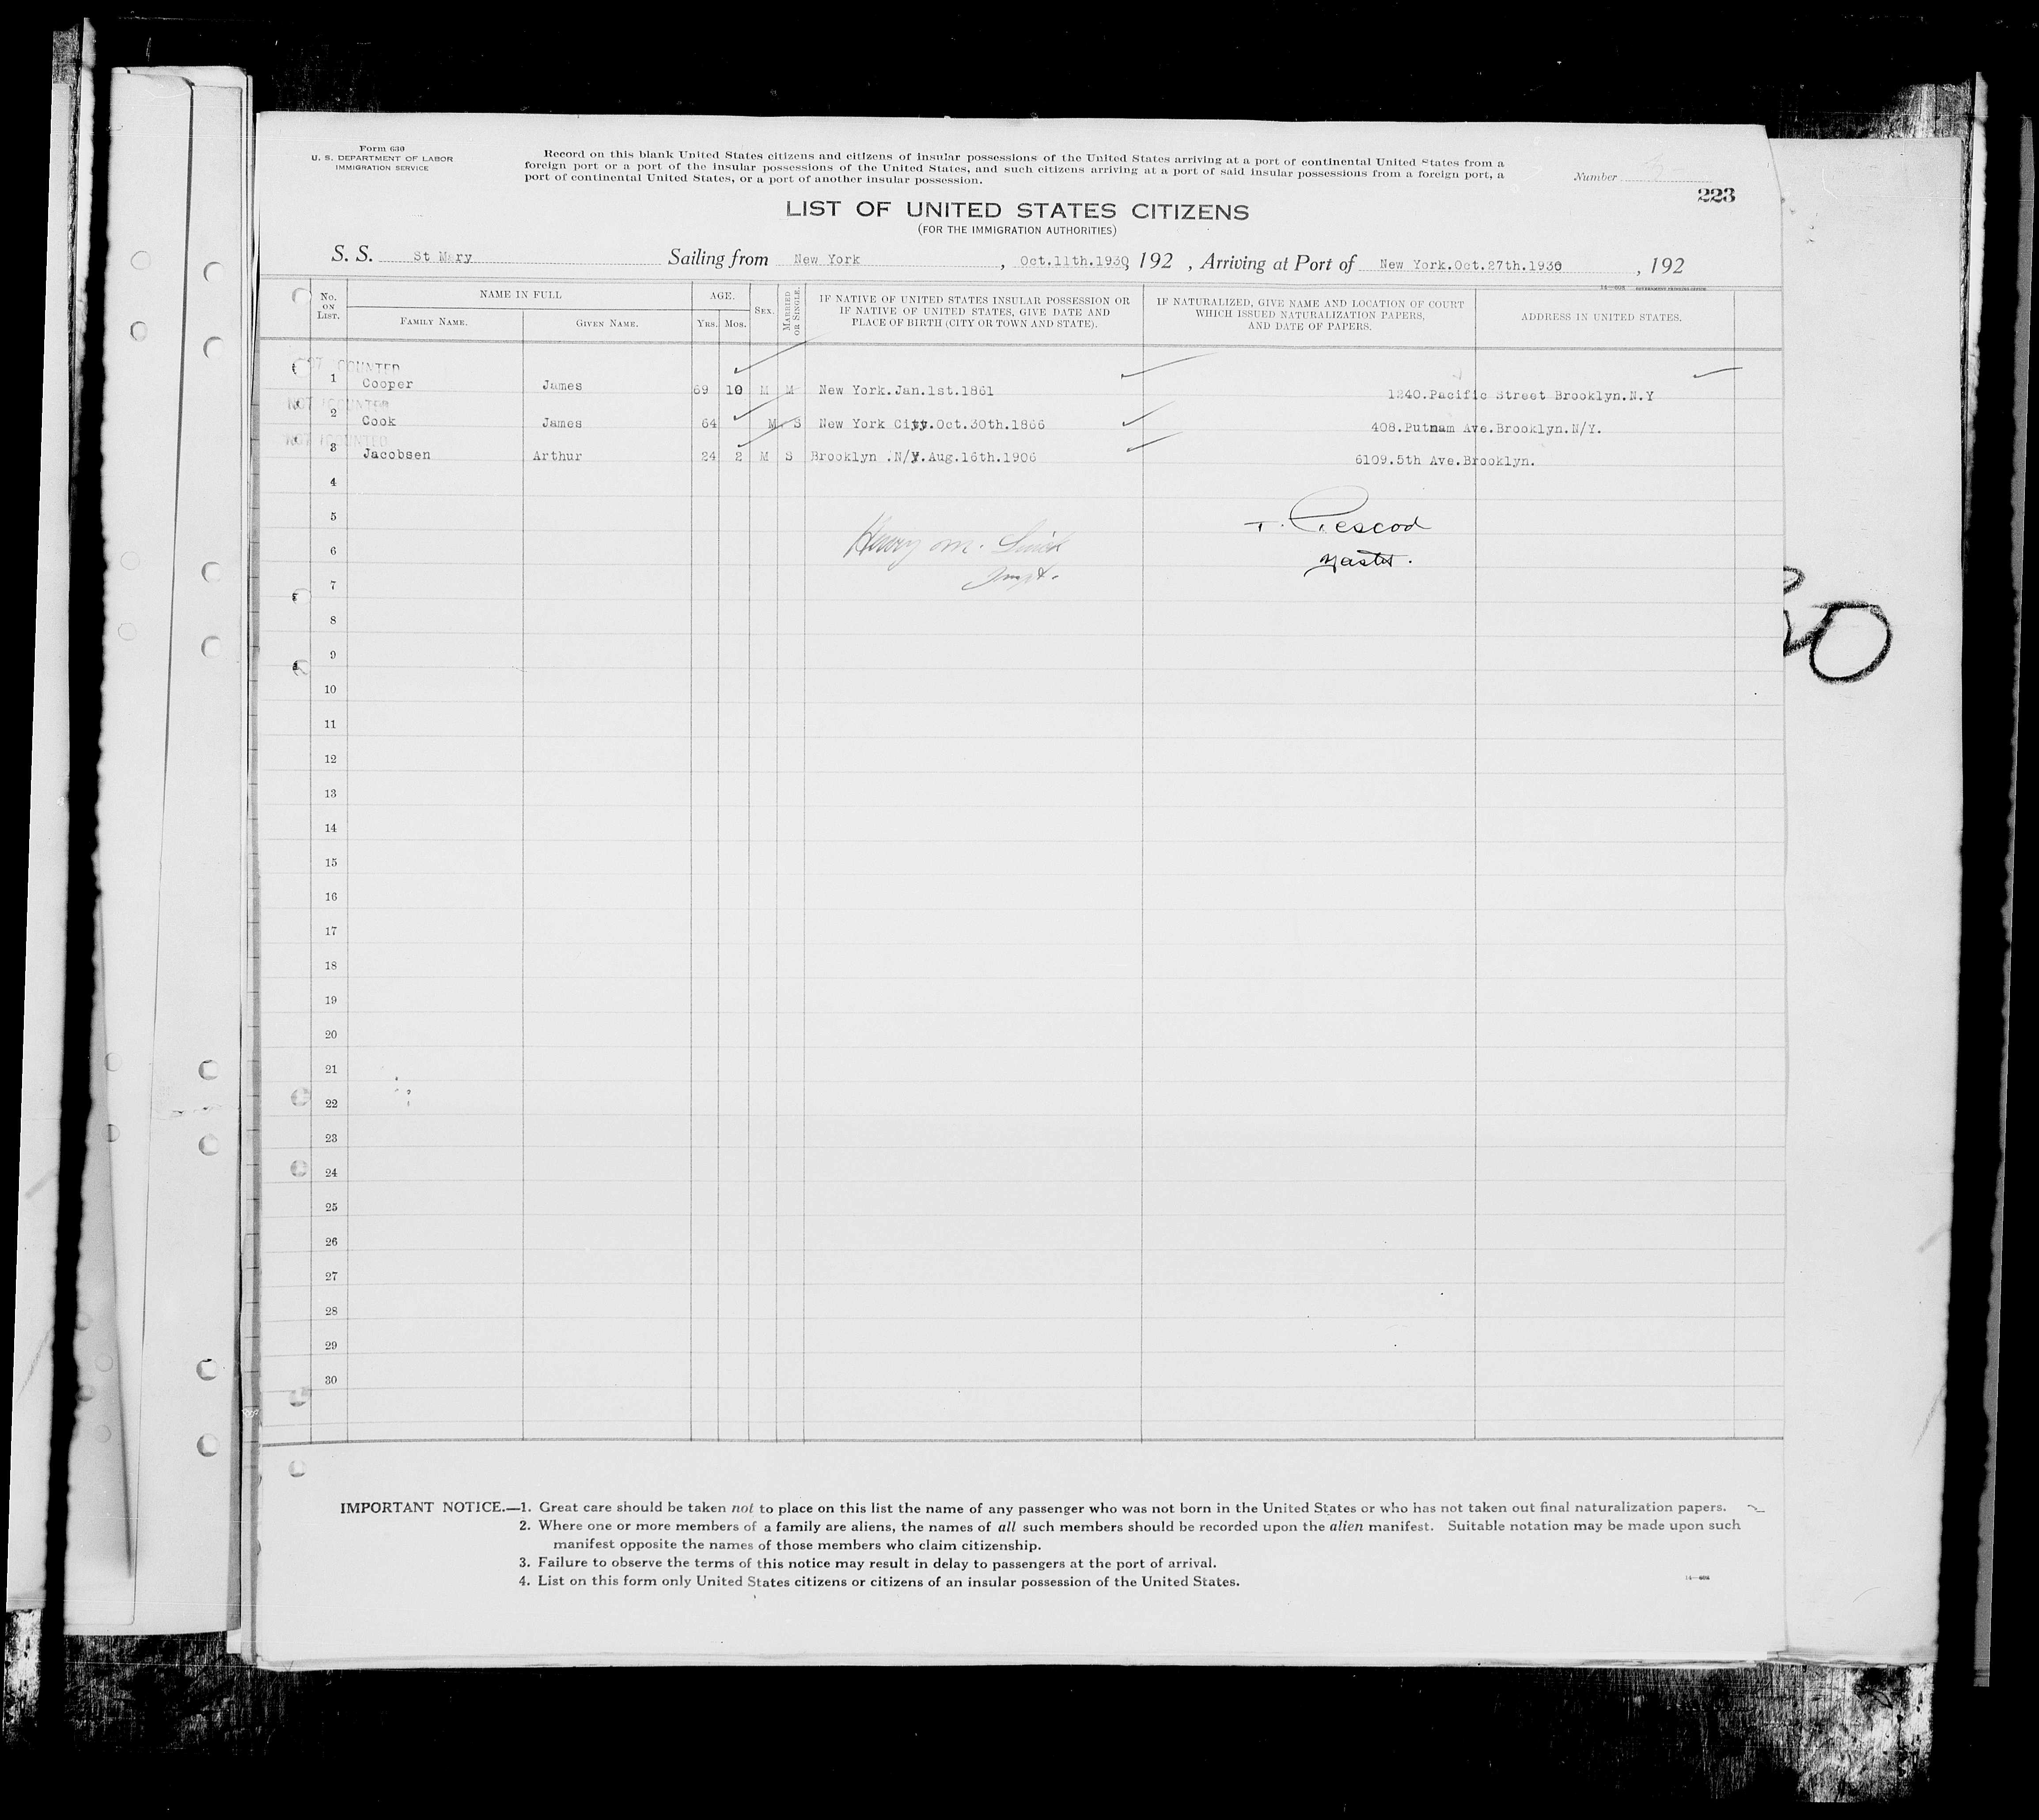 Form 630
U. S. DEPARTMENT OF LABOR
IMMIGRATION SERVICE
Record on this blank United States citizens and citizens of insular possessions of the United States arriving at a port of continental United States from a
foreign port or a port of the insular possessions of the United States, and such citizens arriving at a port of said insular possessions from a foreign port, a
port of continental United States, or a port of another insular possession.
Number
223
LIST OF UNITED STATES CITIZENS
(FOR THE IMMIGRATION AUTHORITIES)
S. S. St Mary Sailing from New York , Oct.11th.1930, 192 , Arriving at Port of New York.Oct.27th.1930 , 192
No. ON LIST. NAME IN FULL AGE. SEX. MARRIED OR SINGLE. IF NATIVE OF UNITED STATES INSULAR POSSESSION OR IF NATIVE OF UNITED STATES, GIVE DATE AND PLACE OF BIRTH (CITY OR TOWN AND STATE). IF NATURALIZED, GIVE NAME AND LOCATION OF COURT WHICH ISSUED NATURALIZATION PAPERS, AND DATE OF PAPERS. ADDRESS IN UNITED STATES.
FAMILY NAME. GIVEN NAME. YRS. MOS.
NOT COUNTED
1 Cooper James 69 10 M M New York.Jan.1st.1861 1240.Pacific Street Brooklyn.N.Y
NOT COUNTED
2 Cook James 64 M S New York City.Oct.30th.1866 408.Putnam Ave.Brooklyn.N/Y.
NOT COUNTED
3 Jacobsen Arthur 24 2 M S Brooklyn .N/Y.Aug.16th.1906 6109.5th Ave.Brooklyn.
4
5 T. Pescod
6 Henry M. Master.
7
8
9
10
11
12
13
14
15
16
17
18
19
20
21
22
23
24
25
26
27
28
29
30
IMPORTANT NOTICE.—1. Great care should be taken not to place on this list the name of any passenger who was not born in the United States or who has not taken out final naturalization papers.
2. Where one or more members of a family are aliens, the names of all such members should be recorded upon the alien manifest. Suitable notation may be made upon such
manifest opposite the names of those members who claim citizenship.
3. Failure to observe the terms of this notice may result in delay to passengers at the port of arrival.
4. List on this form only United States citizens or citizens of an insular possession of the United States.